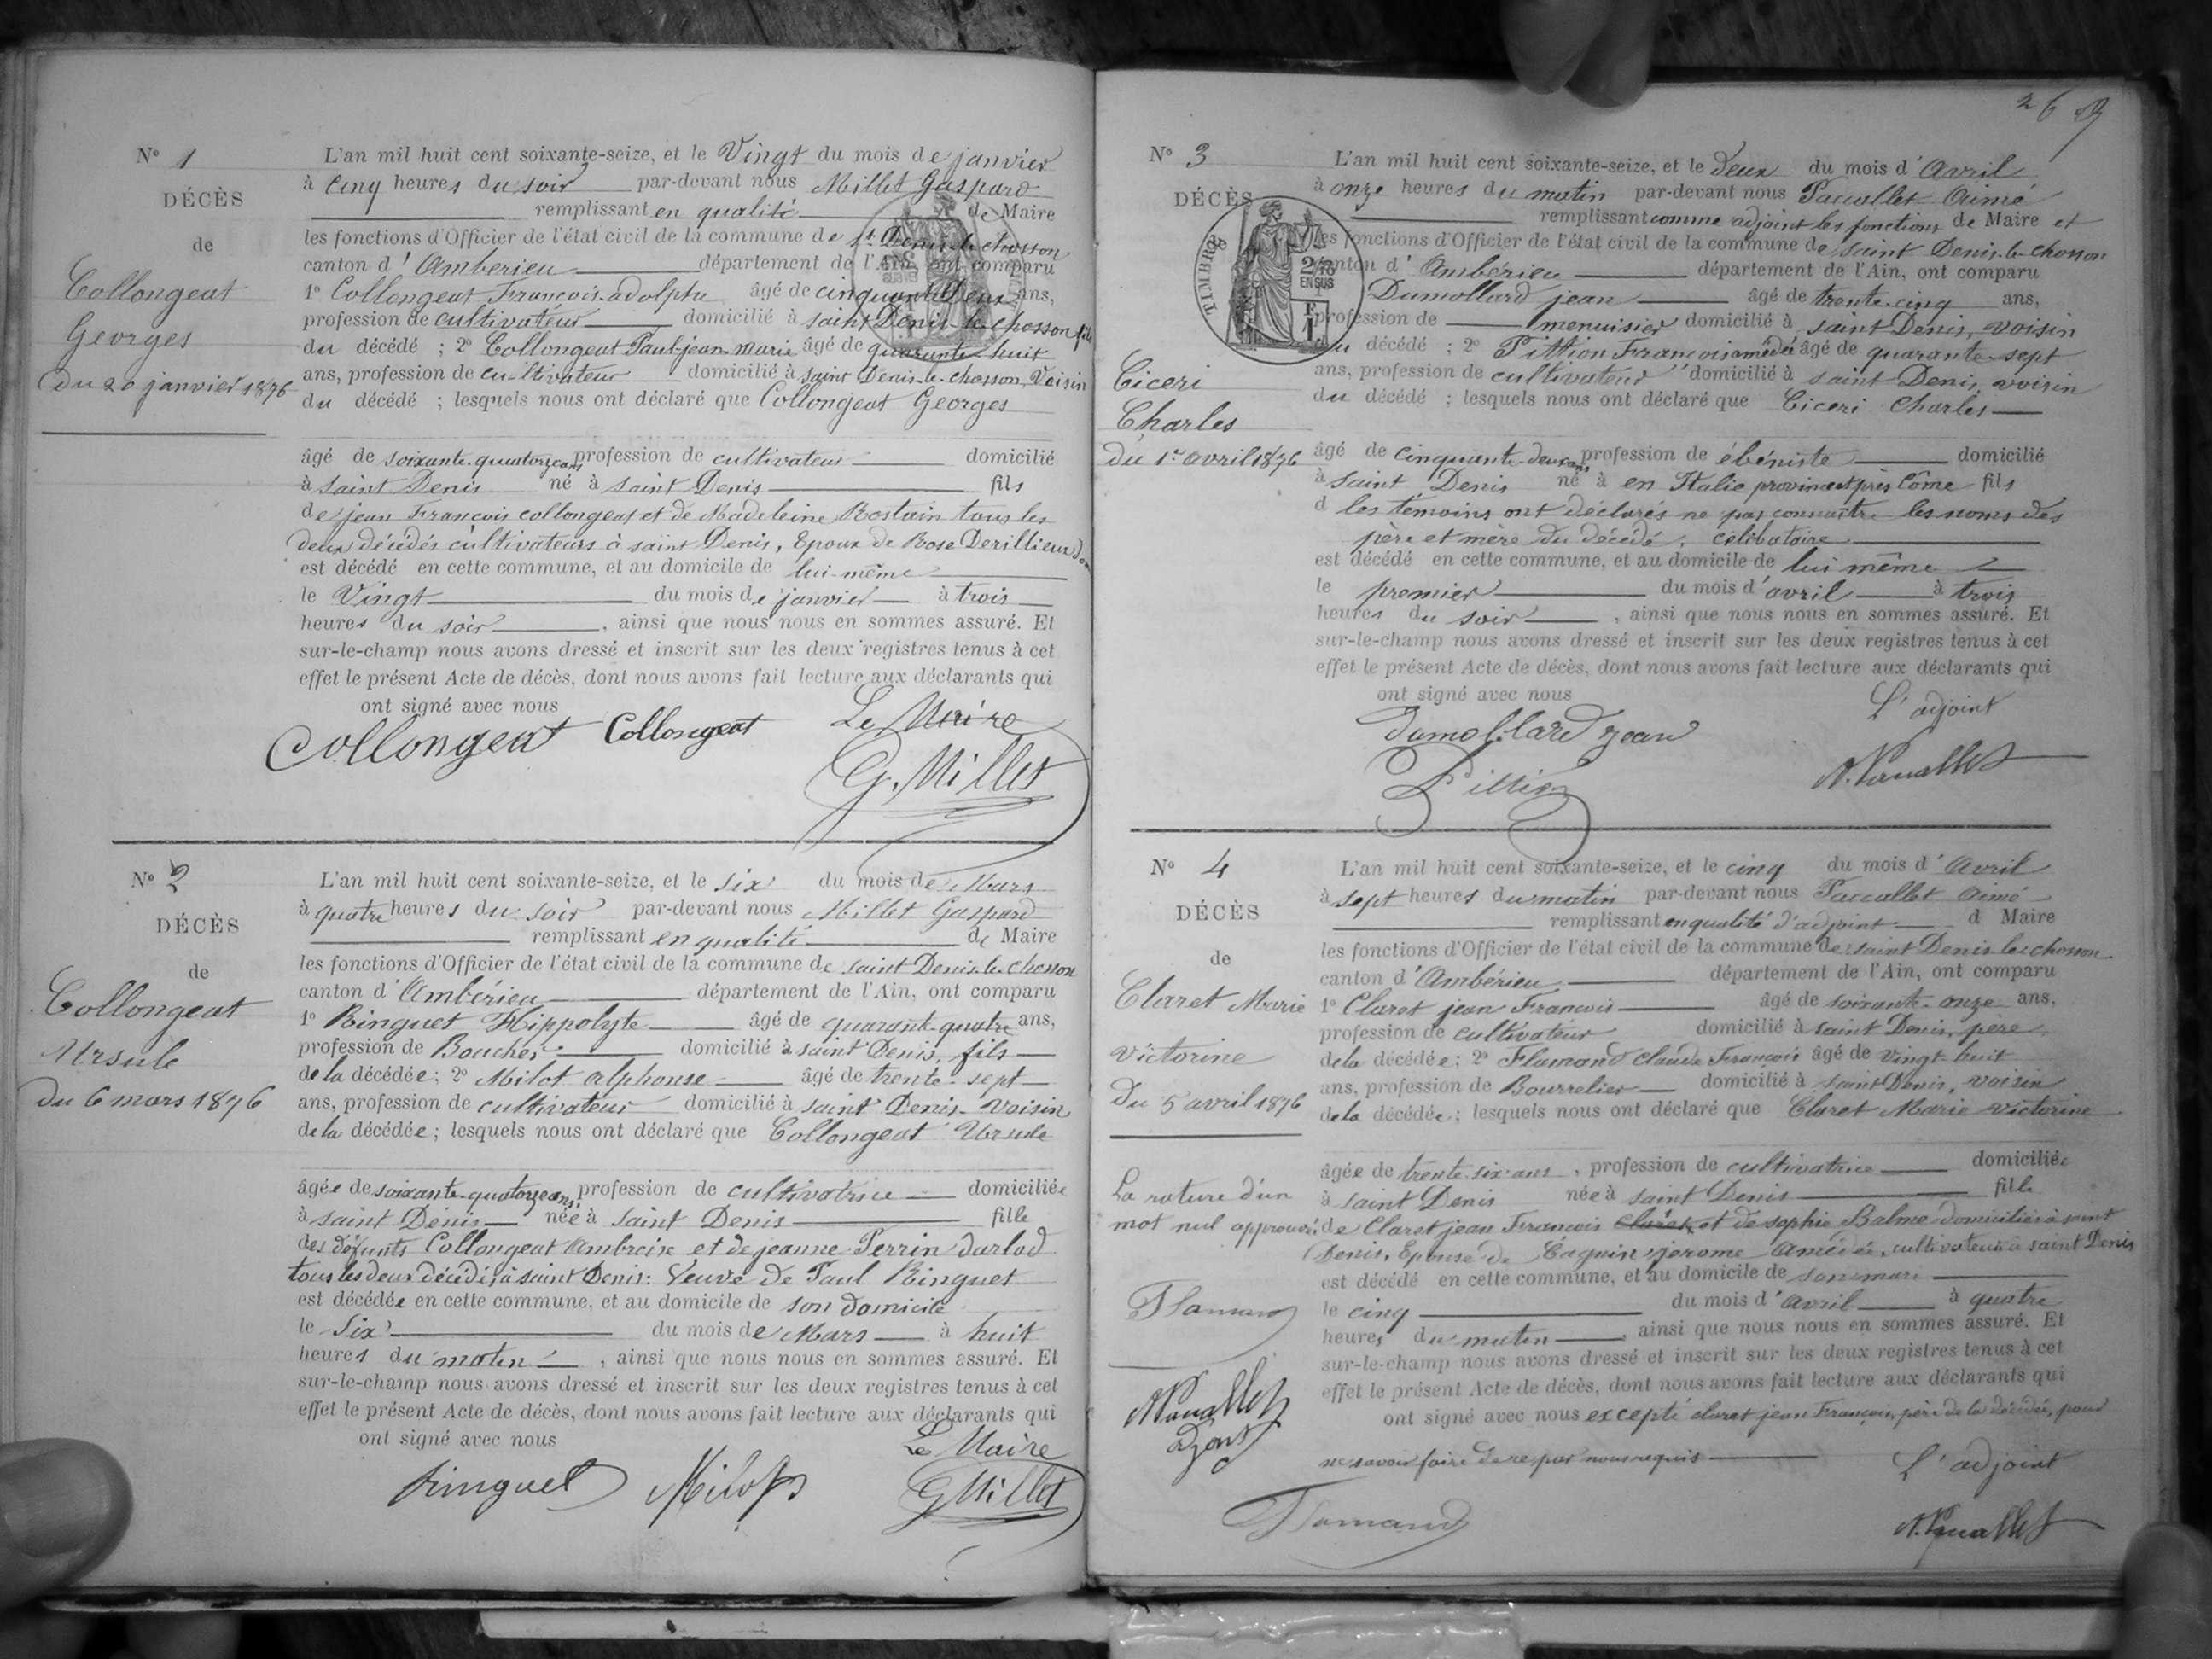 N° 1
DÉCÈS
de
Collongeat
Georges
du 20 janvier 1876
L'an mil huit cent soixante-seize, et le Vingt du mois de janvier
à cinq heures du soir par-devant nous Millet Gaspard
remplissant en qualité de Maire
les fonctions d'Officier de l'état civil de la commune de St Denis-le-chosson
canton d'Ambérieu département de l'Ain, ont comparu
1° Collongeat François-adolphe âgé de cinquante Deux ans,
profession de cultivateur domicilié à saint Denis-le-chosson fils
du décédé ; 2° Collongeat Paul-jean-marie âgé de quarante-huit
ans, profession de cultivateur domicilié à saint Denis-le-chosson, Voisin
du décédé ; lesquels nous ont déclaré que Collongeat Georges
âgé de soixante-quatorze ans profession de cultivateur domicilié
à saint Denis né à saint Denis fils
de jean François collongeat et de Madeleine Rostain tous les
deux décédés cultivateurs à saint Denis, Epoux de Rose Derillieux
est décédé en cette commune, et au domicile de lui-même
le Vingt du mois de janvier à trois
heures du soir , ainsi que nous nous en sommes assuré. Et
sur-le-champ nous avons dressé et inscrit sur les deux registres tenus à cet
effet le présent Acte de décès, dont nous avons fait lecture aux déclarants qui
ont signé avec nous
Le Maire
Collongeat Collongeat
G. Millet
N° 2
DÉCÈS
de
Collongeat
Ursule
du 6 mars 1876
L'an mil huit cent soixante-seize, et le six du mois de Mars
à quatre heures du soir par-devant nous Millet Gaspard
remplissant en qualité de Maire
les fonctions d'Officier de l'état civil de la commune de saint Denis-le-chosson
canton d'Ambérieu département de l'Ain, ont comparu
1° Ringuet Hippolyte âgé de quarante-quatre ans,
profession de Boucher domicilié à saint Denis, fils
de la décédée ; 2° Milot alphonse âgé de trente-sept
ans, profession de cultivateur domicilié à saint Denis-Voisin
de la décédée ; lesquels nous ont déclaré que Collongeat Ursule
âgée de soixante-quatorze ans, profession de cultivatrice domiciliée
à saint Denis née à saint Denis fille
des défunts Collongeat Ambroise et de jeanne Perrin darlod
tous les deux décédés à saint Denis : Veuve de Paul Ringuet
est décédée en cette commune, et au domicile de son domicile
le Six du mois de Mars à huit
heures du matin , ainsi que nous nous en sommes assuré. Et
sur-le-champ nous avons dressé et inscrit sur les deux registres tenus à cet
effet le présent Acte de décès, dont nous avons fait lecture aux déclarants qui
ont signé avec nous
Le Maire
Ringuet Milot G Millet
26
N° 3
DÉCÈS
TIMBRE
2/10 EN SUS
Ciceri
Charles
du 1er avril 1876
L'an mil huit cent soixante-seize, et le Deux du mois d'Avril
à onze heures du matin par-devant nous Paccallet Aimé
remplissant comme adjoint les fonctions de Maire et
les fonctions d'Officier de l'état civil de la commune de saint Denis-le-chosson
canton d'Ambérieu département de l'Ain, ont comparu
Dumollard jean âgé de trente-cinq ans,
profession de menuisier domicilié à saint Denis, voisin
du décédé ; 2° Pittion François amédée âgé de quarante-sept
ans, profession de cultivateur domicilié à saint Denis, voisin
du décédé ; lesquels nous ont déclaré que Ciceri Charles
âgé de cinquante-deux ans profession de ébéniste domicilié
à saint Denis né à en Italie province et près Côme fils
d les témoins ont déclarés ne pas connaître les noms des
père et mère du décédé. célibataire
est décédé en cette commune, et au domicile de lui même
le premier du mois d'avril à trois
heures du soir , ainsi que nous nous en sommes assuré. Et
sur-le-champ nous avons dressé et inscrit sur les deux registres tenus à cet
effet le présent Acte de décès, dont nous avons fait lecture aux déclarants qui
ont signé avec nous
L'adjoint
Dumollard jean
Pittion
A. Paccallet
N° 4
DÉCÈS
de
Claret Marie
Victorine
du 5 avril 1876
La rature d'un
mot nul approuvé
Flamand
A Paccallet
adjoint
L'an mil huit cent soixante-seize, et le cinq du mois d'Avril
à sept heures du matin par-devant nous Paccallet Aimé
remplissant en qualité d'adjoint d Maire
les fonctions d'Officier de l'état civil de la commune de saint Denis-le-chosson
canton d'Ambérieu département de l'Ain, ont comparu
1° Claret jean François âgé de soixante-onze ans,
profession de cultivateur domicilié à saint Denis, père
de la décédée ; 2° Flamand Claude François âgé de vingt-huit
ans, profession de Bourrelier domicilié à saint Denis, voisin
de la décédée ; lesquels nous ont déclaré que Claret Marie Victorine
âgée de trente-six ans , profession de cultivatrice domiciliée
à saint Denis née à saint Denis fille
de Claret jean François Claret et de sophie Balme domiciliés à saint
Denis, Epouse de Caquin jérome Amédée, cultivateur à saint Denis
est décédé en cette commune, et au domicile de son mari
le cinq du mois d'Avril à quatre
heures du matin , ainsi que nous nous en sommes assuré. Et
sur-le-champ nous avons dressé et inscrit sur les deux registres tenus à cet
effet le présent Acte de décès, dont nous avons fait lecture aux déclarants qui
ont signé avec nous excepté claret jean François, père de la décédée, pour
ne savoir faire de ce par nous requis
L'adjoint
Flamand
A. Paccallet